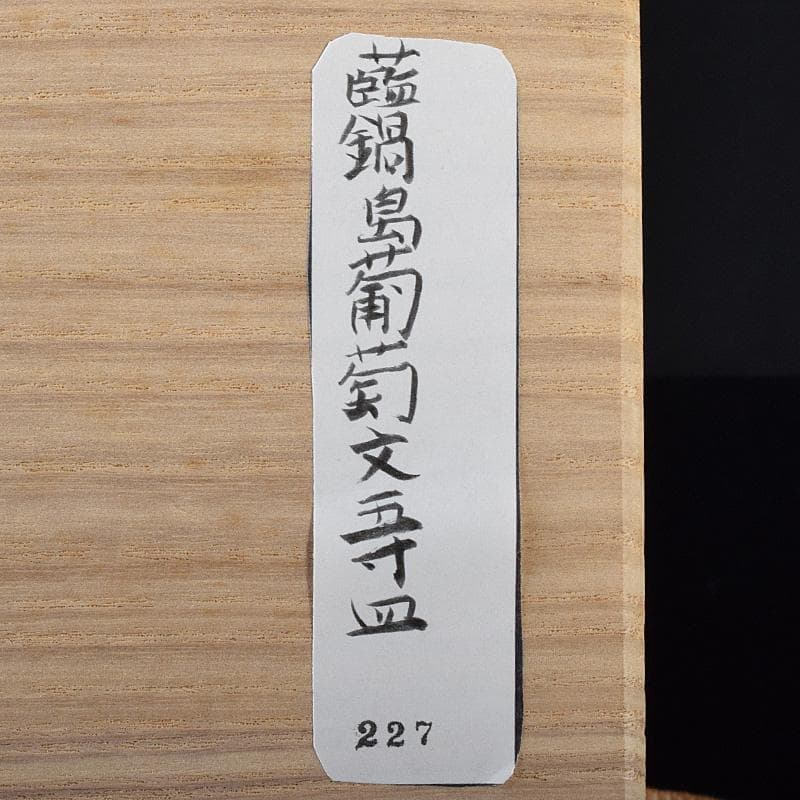 藍鍋島葡萄文五寸皿
227